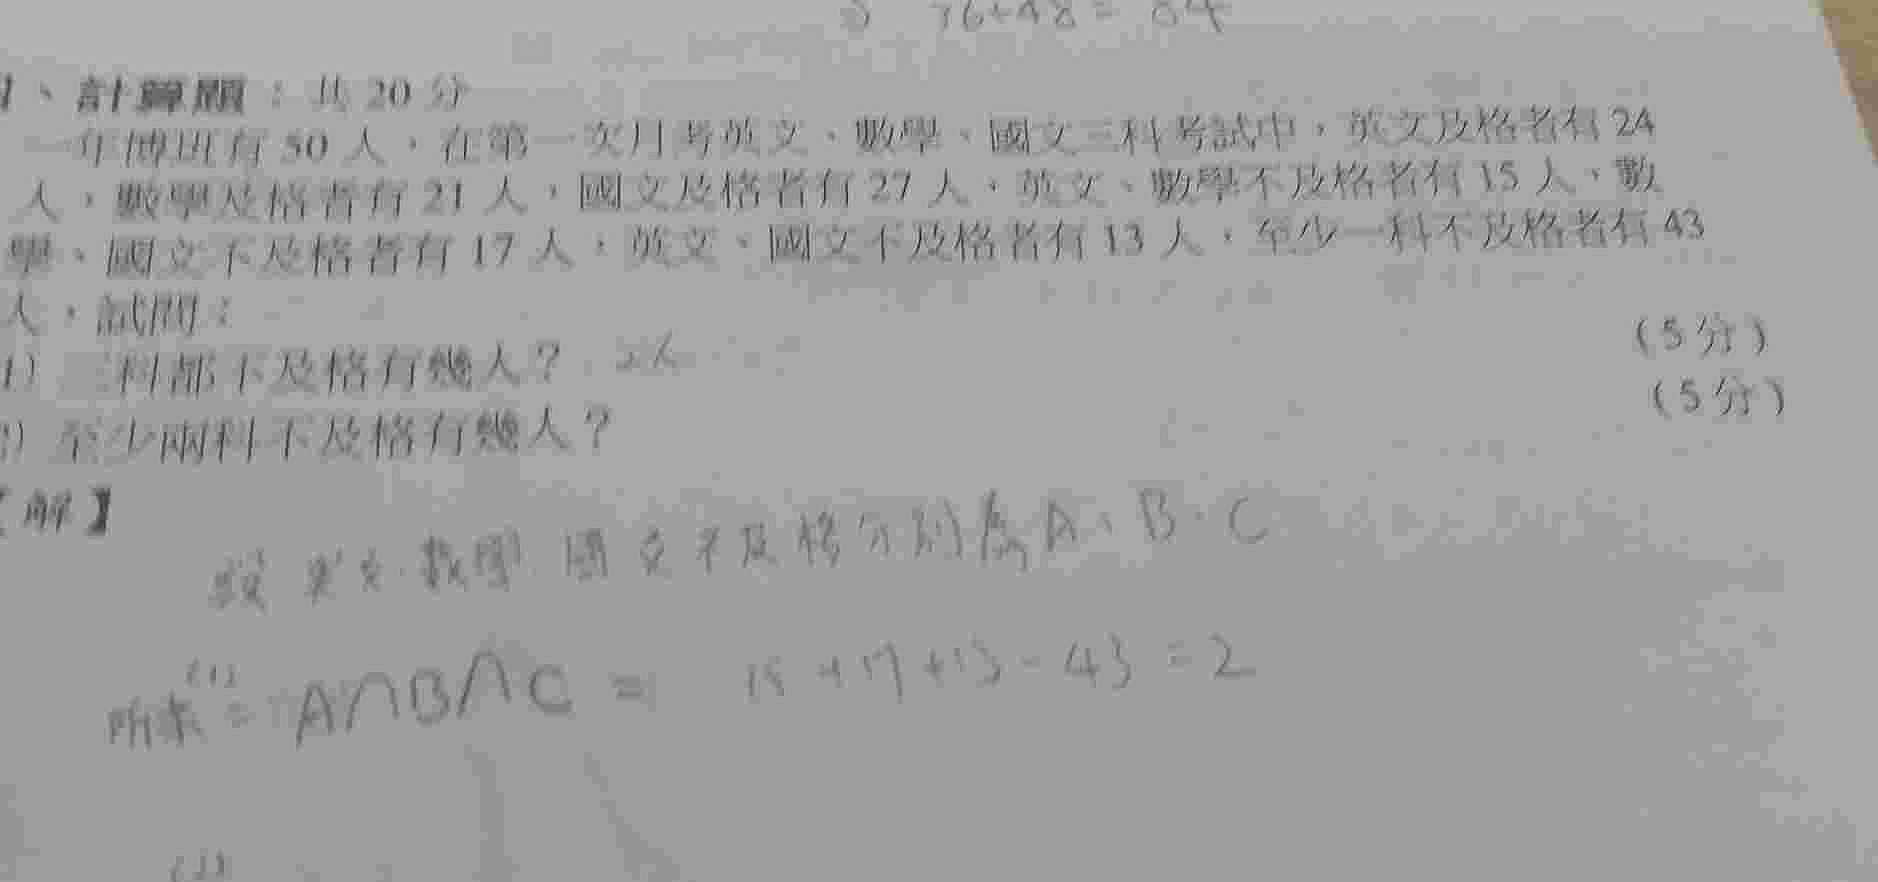 36+48=84
、計算題：共 20 分
一年博班有 50 人，在第一次月考英文、數學、國文三科考試中，英文及格者有 24
人，數學及格者有 21 人，國文及格者有 27 人，英文、數學不及格者有 15 人，數
學、國文不及格者有 17 人，英文、國文不及格者有 13 人，至少一科不及格者有 43
人，試問：
1) 三科都不及格有幾人？ 2人 (5 分)
) 至少兩科不及格有幾人？ (5 分)
【解】
設 英文.數學 國文不及格分別為A、B.C
所求(1)= A∩B∩C = 15+17+13-43=2
(2)